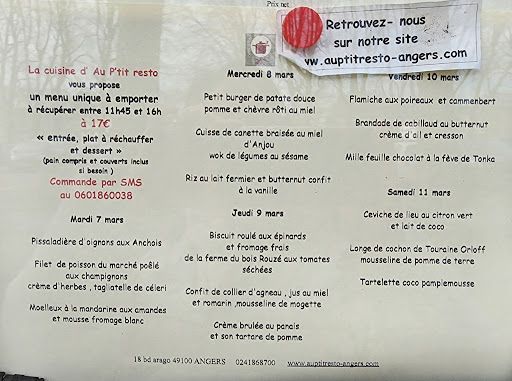 Prix net
Retrouvez- nous
sur notre site
ww.auptitresto-angers.com
La cuisine d' Au P'tit resto
vous propose
un menu unique à emporter
à récupérer entre 11h45 et 16h
à 17€
« entrée, plat à réchauffer
et dessert »
(pain compris et couverts inclus
si besoin )
Commande par SMS
au 0601860038
Mardi 7 mars
Pissaladière d'oignons aux Anchois
Filet de poisson du marché poêlé
aux champignons
crème d'herbes , tagliatelle de céleri
Moelleux à la mandarine aux amandes
et mousse fromage blanc
Mercredi 8 mars
Petit burger de patate douce
pomme et chèvre rôti au miel
Cuisse de canette braisée au miel
d'Anjou
wok de légumes au sésame
Riz au lait fermier et butternut confit
à la vanille
Jeudi 9 mars
Biscuit roulé aux épinards
et fromage frais
de la ferme du bois Rouzé aux tomates
séchées
Confit de collier d'agneau , jus au miel
et romarin ,mousseline de mogette
Crème brulée au panais
et son tartare de pomme
Vendredi 10 mars
Flamiche aux poireaux et cammenbert
Brandade de cabillaud au butternut
crème d'ail et cresson
Mille feuille chocolat à la fève de Tonka
Samedi 11 mars
Ceviche de lieu au citron vert
et lait de coco
Longe de cochon de Touraine Orloff
mousseline de pomme de terre
Tartelette coco pamplemousse
18 bd arago 49100 ANGERS 0241868700 www.auptitresto-angers.com